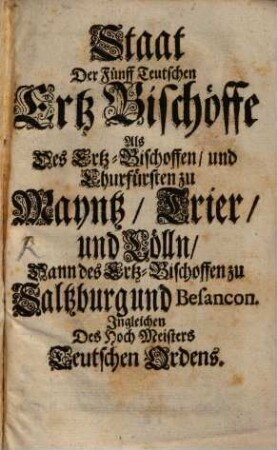 Staat
Der Fünff Teutschen
Ertz Bischöffe
Als
Des Ertz-Bischoffen/ und
Churfürsten zu
Mayntz/ Trier/
und Cölln/
Dann des Ertz-Bischoffen zu
Saltzburg und Besancon.
Ingleichen
Des Hoch Meisters
Teutschen Ordens.